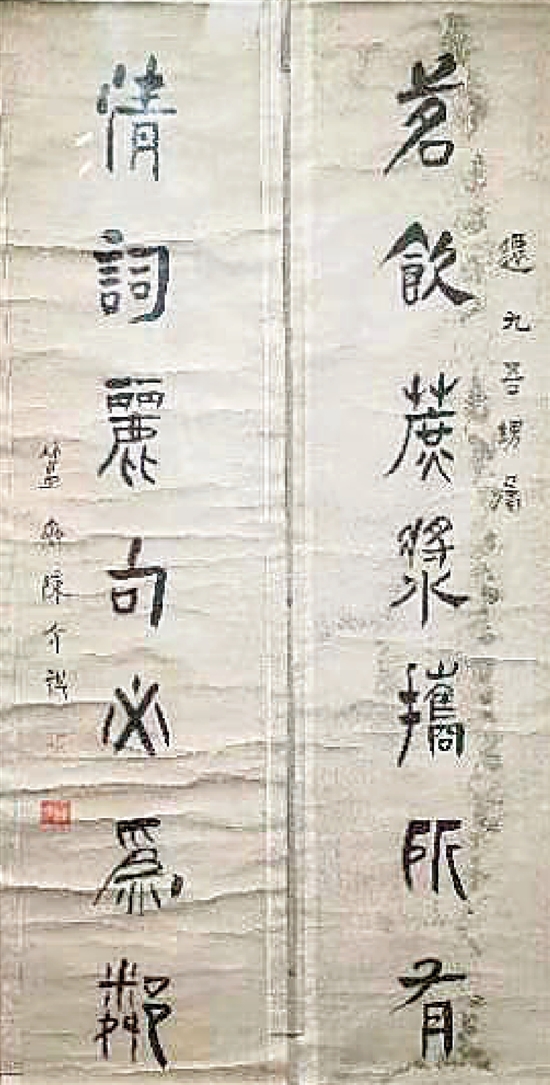 茗飲蔗漿攜所有
清詞麗句必為鄰
九吾甥屬
簠齋陳介祺